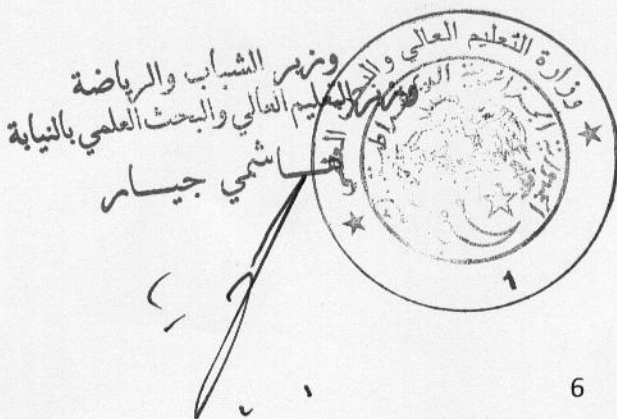 وزير الشباب والرياضة
وزير التعليم العالي والبحث العلمي بالنيابة
هاشمي جيار
وزارة التعليم العالي والبحث العلمي
الجمهورية الجزائرية الديمقراطية
1
6